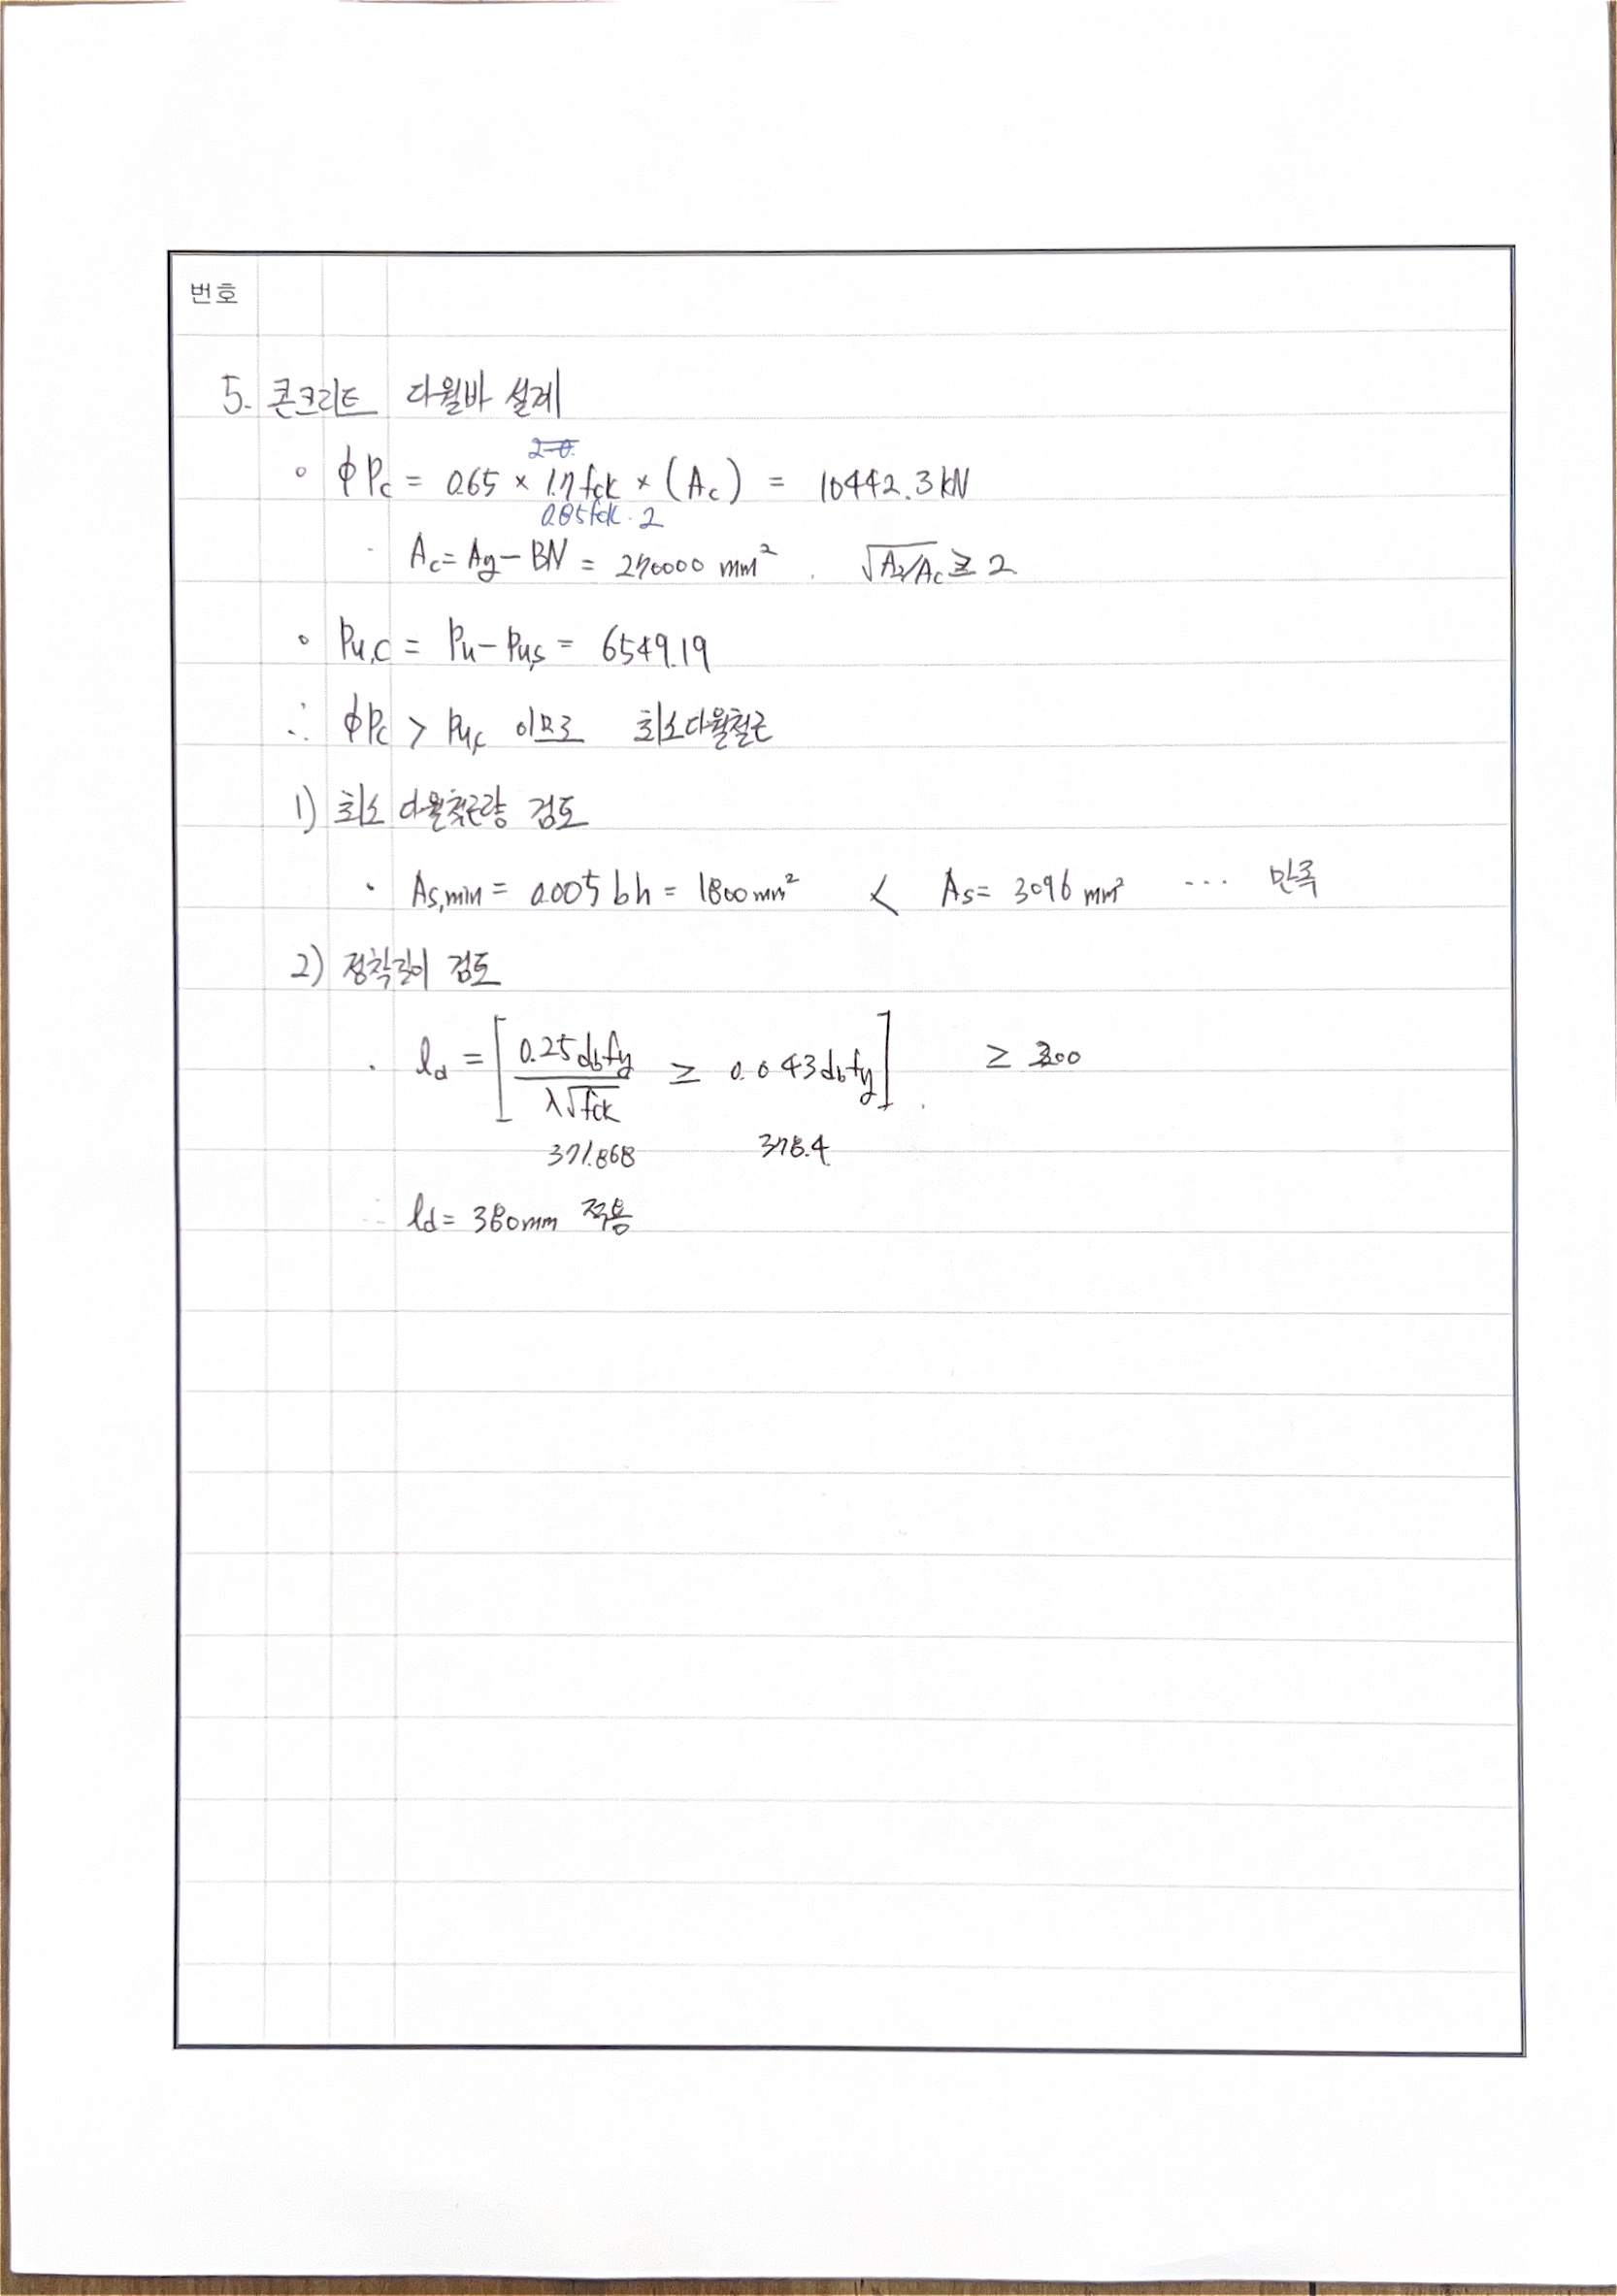 번호
5. 콘크리트 다월바 설계
2-θ.
◦ ϕPc = 0.65 × 1.7fck × (Ac) = 10442.3kN
0.85fck · 2
· Ac = Ag - BN = 270000 mm² . √A₂/Ac ≥ 2
◦ Pu,c = Pu - Pu,s = 6549.19
∴ ϕPc > Pu,c 이므로 최소다월철근
1) 최소 다월철근량 검토
· As,min = 0.005bh = 1800mm² < As = 3096 mm² ... 만족
2) 정착길이 검토
· ld = [0.25dbfy / λ√fck ≥ 0.043dbfy] ≥ 200
371.868 378.4
∴ ld = 380mm 적용